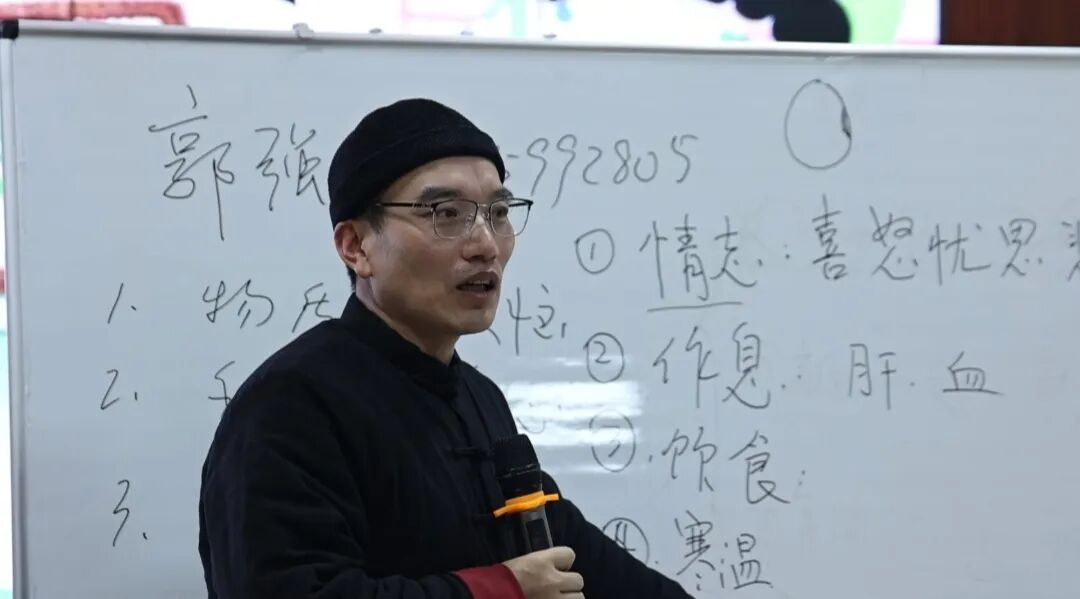 郭强 992805
1. 物质 性
2.
3.
① 情志：喜怒忧思
② 作息：肝.血
③ 饮食：
④ 寒温